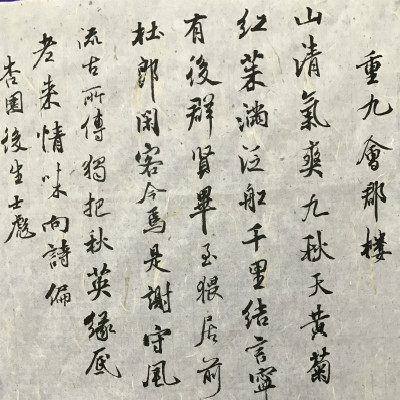 重九會郡楼
山清氣爽九秋天黃菊
紅茱滿泛船千里結言寧
有後群賢畢至猥居前
杜郎閑客今焉是謝守風
流古所傳獨把秋英緣底
老来情味向詩偏
杏園後生士彪